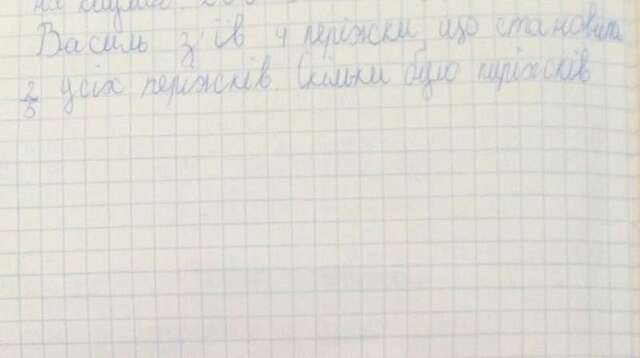 на
Василь з'їв 4 періжки що становила
2/5 усіх періжків. Скільки було періжків